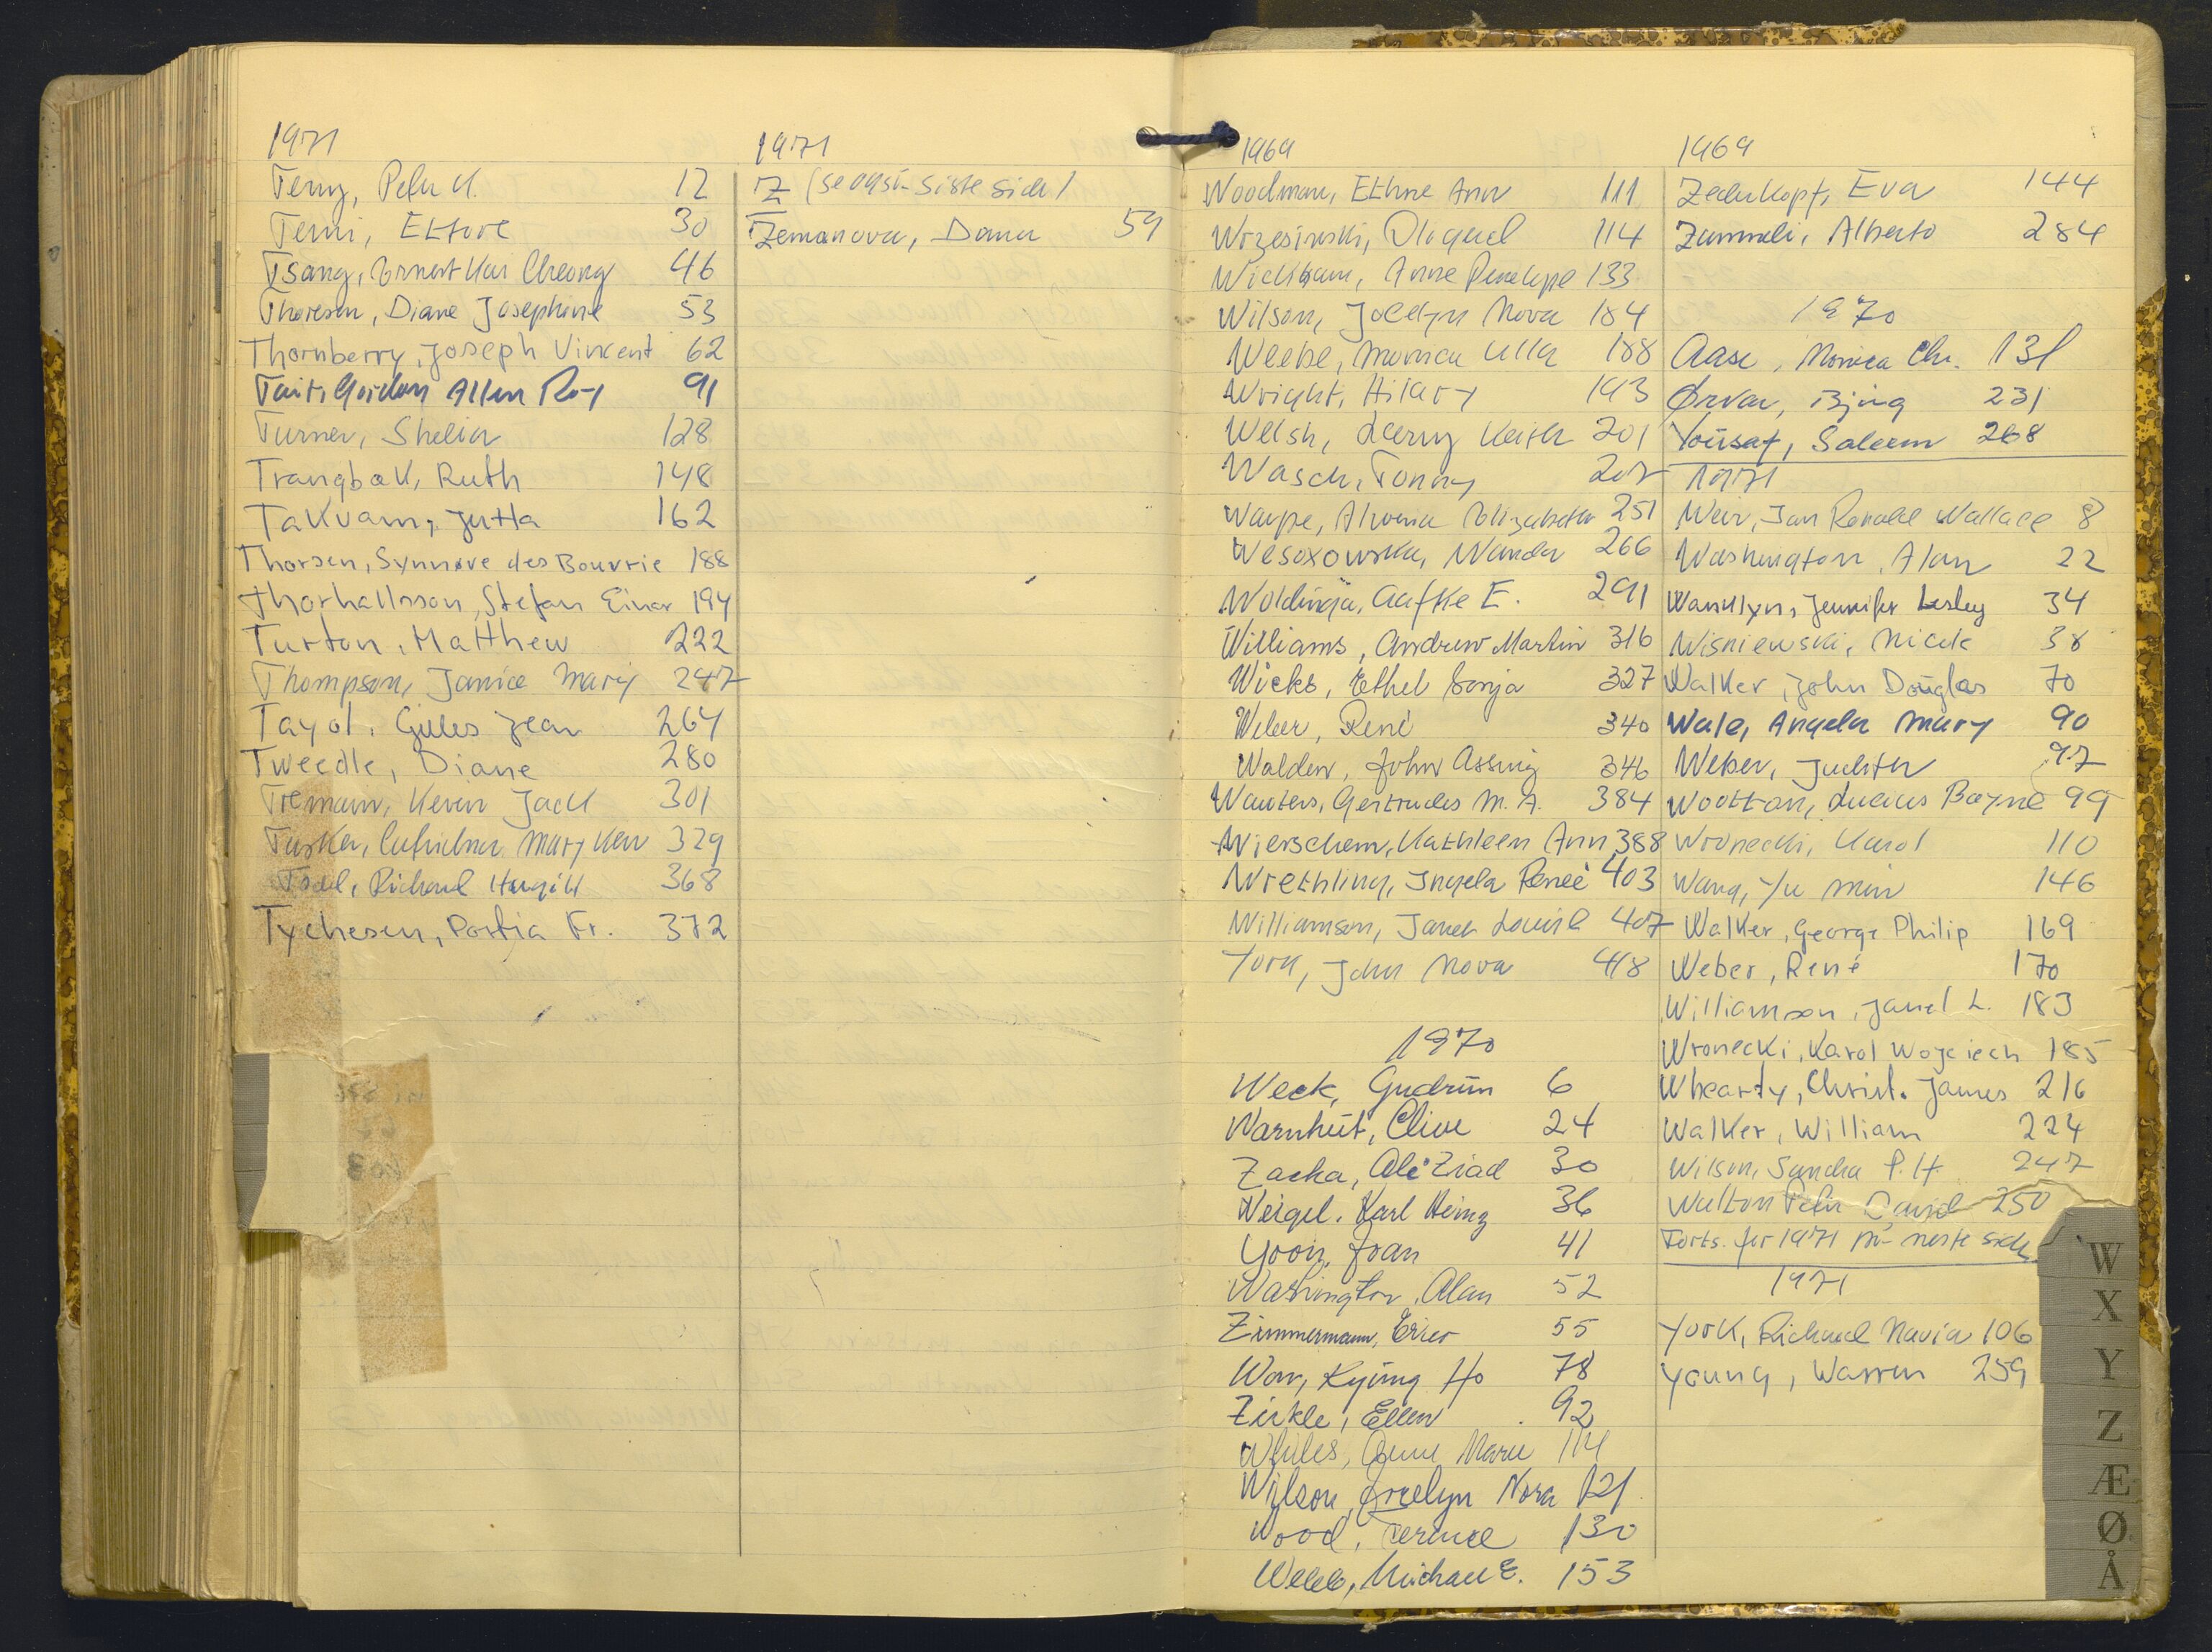 1971
Terry, Peter K. 12
Terni, Ettore 30
Tsang, Ernest Kai Cheong 46
Thoresen, Diane Josephine 53
Thornberry, Joseph Vincent 62
Tait, Gordon Allen Roy 91
Turner, Shelia 128
Trangbæk, Ruth 148
Takvam, Jutta 162
Thorsen, Synnøve des Bouvrie 188
Thorhallsson, Stefan Einar 194
Turton, Matthew 222
Thompson, Janice Mary 247
Tayol, Gilles Jean 264
Tweedle, Diane 280
Tiemann, Keven Jack 301
Tusker, Mary Kew 329
Richard 368
Tychesen, Portia Fr. 372
1971
Z (se også siste side)
Zemanova, Dana 59
1969
Woodman, Ethne Ann 111
Wrzesinski, 114
Wickham, Anne Penelope 133
Wilson, Jocelyn Nora 184
Weebe, Monica Ulla 188
Wright, Hilary 193
Welsh, Larry Keith 201
Wasch, Tonny 207
Elizabeth 251
Wesoxowska, Wanda 266
Woldinga, Aafke E. 291
Williams, Andrew Martin 316
Wicks, Ethel Sonja 327
Weber, René 340
Walden, John Assing 346
Wauters, Gertrudes M. A. 384
Wierschem, Kathleen Ann 388
Wrethling, Ingela Reneé 403
Williamson, Janet Louise 407
York, John Nova 418
1970
Weck, Gudrun 6
Warnhut, Clive 24
Zacka, Ali Ziad 30
Weigel, Karl Heinz 36
Yoon, Joan 41
Washington, Alan 52
Zimmermann, 55
Won, Kyung Ho 78
Zirkle, Ellen 92
Whiles, Anne Marie 114
Wilson, Jocelyn Nora 121
Wood, Terence 130
Webb, Michael E. 153
1969
Zederkopf, Eva 144
Zammeli, Alberto 284
1970
Aase, Monica Chr. 131
Ørvar, Bjørg 231
Yousaf, Saleem 268
1971
Weir, Ian Ronald Wallace 8
Washington, Alan 22
Wandlyn, Jennifer Lesley 34
Wisniewski, Nicole 38
Walker, John Douglas 70
Wale, Angela Mary 90
Weber, Judith 97
Wootton, Lucius Bayne 99
Wronecki, Karol 110
Wang, Yu Min 146
Walker, George Philip 169
Weber, René 170
Williamson, Janet L. 183
Wronecki, Karol Wojciech 185
Whearty, Christ. James 216
Walker, William 224
Wilson, Sandra P. H. 247
Walton Peter David 250
Forts. for 1971 på neste side
1971
York, Richard Navia 106
Young, Warren 259
W
X
Y
Z
Æ
Ø
Å